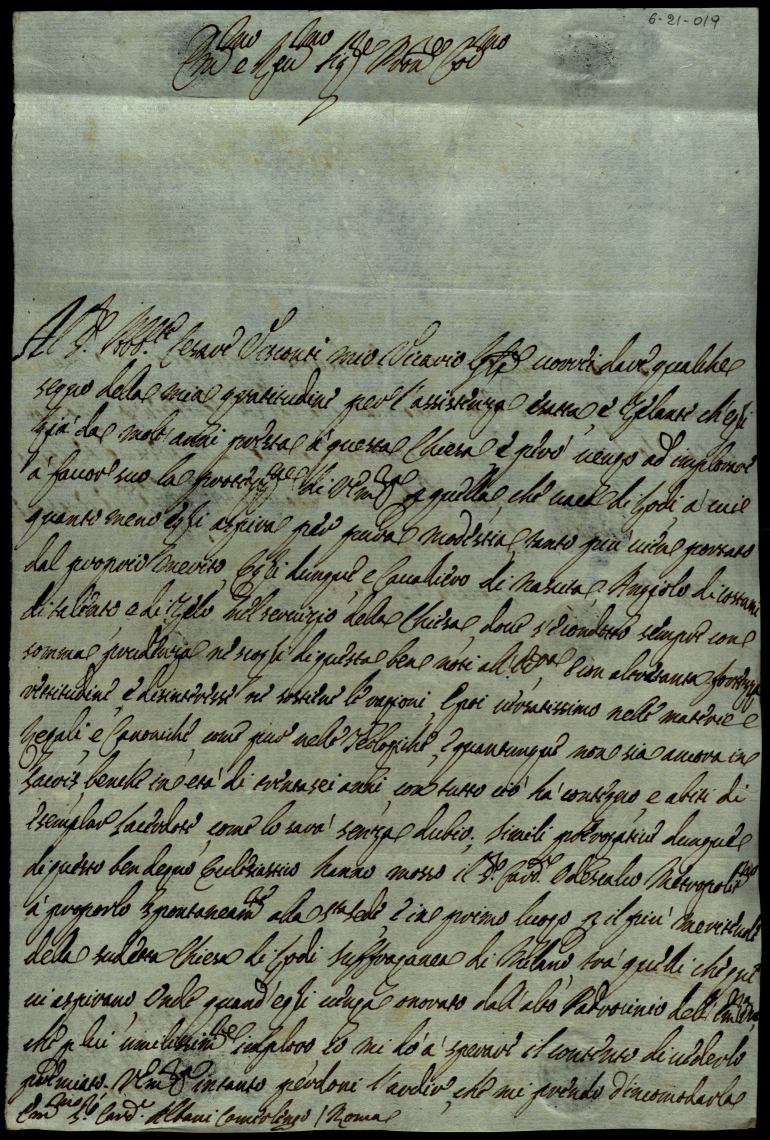 6-21-019
Em.mo e Rev.mo Sig.re Pron.e Col.mo
Al S.r Abb.te Cesare Visconti mio Vicario Gn̄le vorrei dare qualche
segno della mia gratitudine per l'assistenza esatta, e zelante ch'egli
già da molt'anni presta à questa Chiesa e però vengo ad implorare
à favor suo la protez.ne di V. Em.za p quella che vaca di Lodi, à cui
quanto meno egli aspira per pura modestia, tanto più viene portato
dal proprio merito. Egli dunque e Cavaliero di nascita, Angiolo di costumi
di talento e di zelo nel servizio della Chiesa, dove s'è condotto sempre con
somma prudenza ne scogli di questa ben noti all' e con altretanta fortezza
rettitudine, e disinteresse ne sostiene le ragioni. Egli è versatissimo nelle materie
Legali e Canoniche, come pure nelle Teologiche, e quantunque non sia ancora in
Sacris benche in età di trentasei anni, con tutto ciò hà contegno, e abiti di
esemplar Sacerdote, come lo sarà senza dubio. Simili prerogative dunque
di questo ben degno Ecclesiastico hanno mosso il S.r Card.e Odescalchi Metropolit.no
à proporlo spontaneam.te alla S.ta Sede, e in primo luogo p il più meritevole
della sudetta Chiesa di Lodi suffraganea di Milano trà quelli che
vi aspirano. Onde quand'egli venga onorato dall'alto Padrocinio dell'Em.za V.ra
che p lui umilissim.te imploro io mi hò à sperare il contento di vederlo
premiato. V. Em.za intanto perdoni l'ardire, che mi prendo d'incomodarla
Em.mo S.r Card.e Albani Camerlengo / Roma